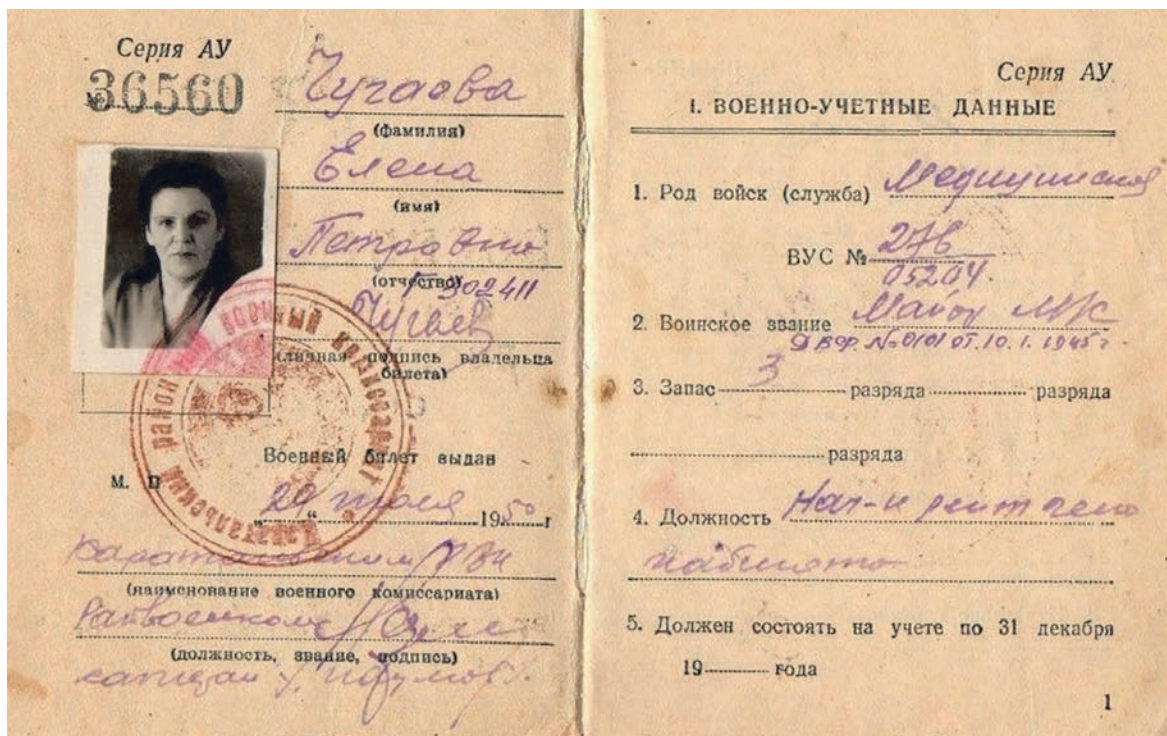 Серия АУ
№ 36560
Чугаова
(фамилия)
Елена
(имя)
Петровна
(отчество)
Г 302411
Чугаев
(личная подпись владельца
билета)
Военный билет выдан
М. П.
„29“ июля 1950 г
Каратальским РВК
(наименование военного комиссариата)
Райвоенком
(должность, звание, подпись)
Серия АУ
I. ВОЕННО-УЧЕТНЫЕ ДАННЫЕ
1. Род войск (служба) Медицинская
ВУС № 276
05204.
2. Воинское звание Майор М/С
ОТ 10.1.1945 г.
3. Запас 3 разряда разряда
разряда
4. Должность Нач-к рентгено
кабинета
5. Должен состоять на учете по 31 декабря
19 года
1